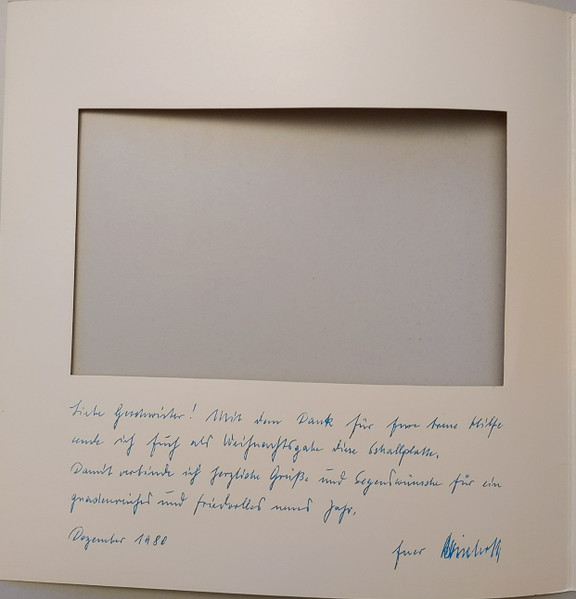 Liebe Geschwister! Mit dem Dank für Eure treue Hilfe
sende ich Euch als Weihnachtsgabe diese Schallplatte.
Damit verbinde ich herzliche Grüße und Segenswünsche für ein
gnadenreiches und friedvolles neues Jahr.
Dezember 1980
Euer